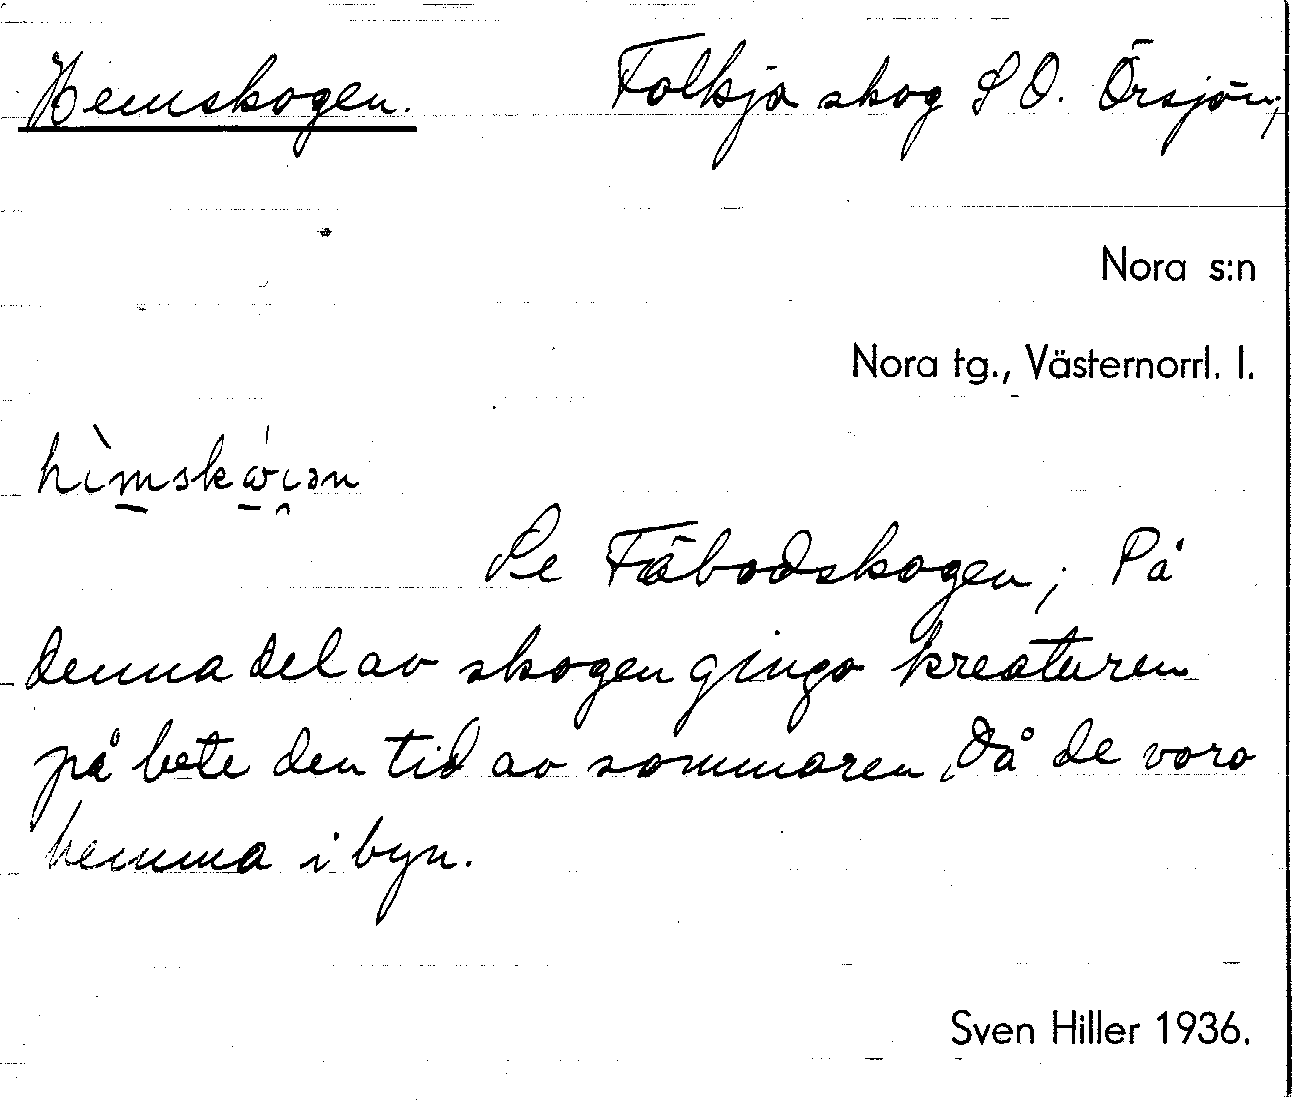 Hemskogen. Folkja skog S O. Örsjön;
Nora s:n
Nora tg., Västernorrl. l.
Se Fäbodskogen; På
denna del av skogen gingo kreaturen
på bete den tid av sommaren, då de voro
hemma i byn.
Sven Hiller 1936.